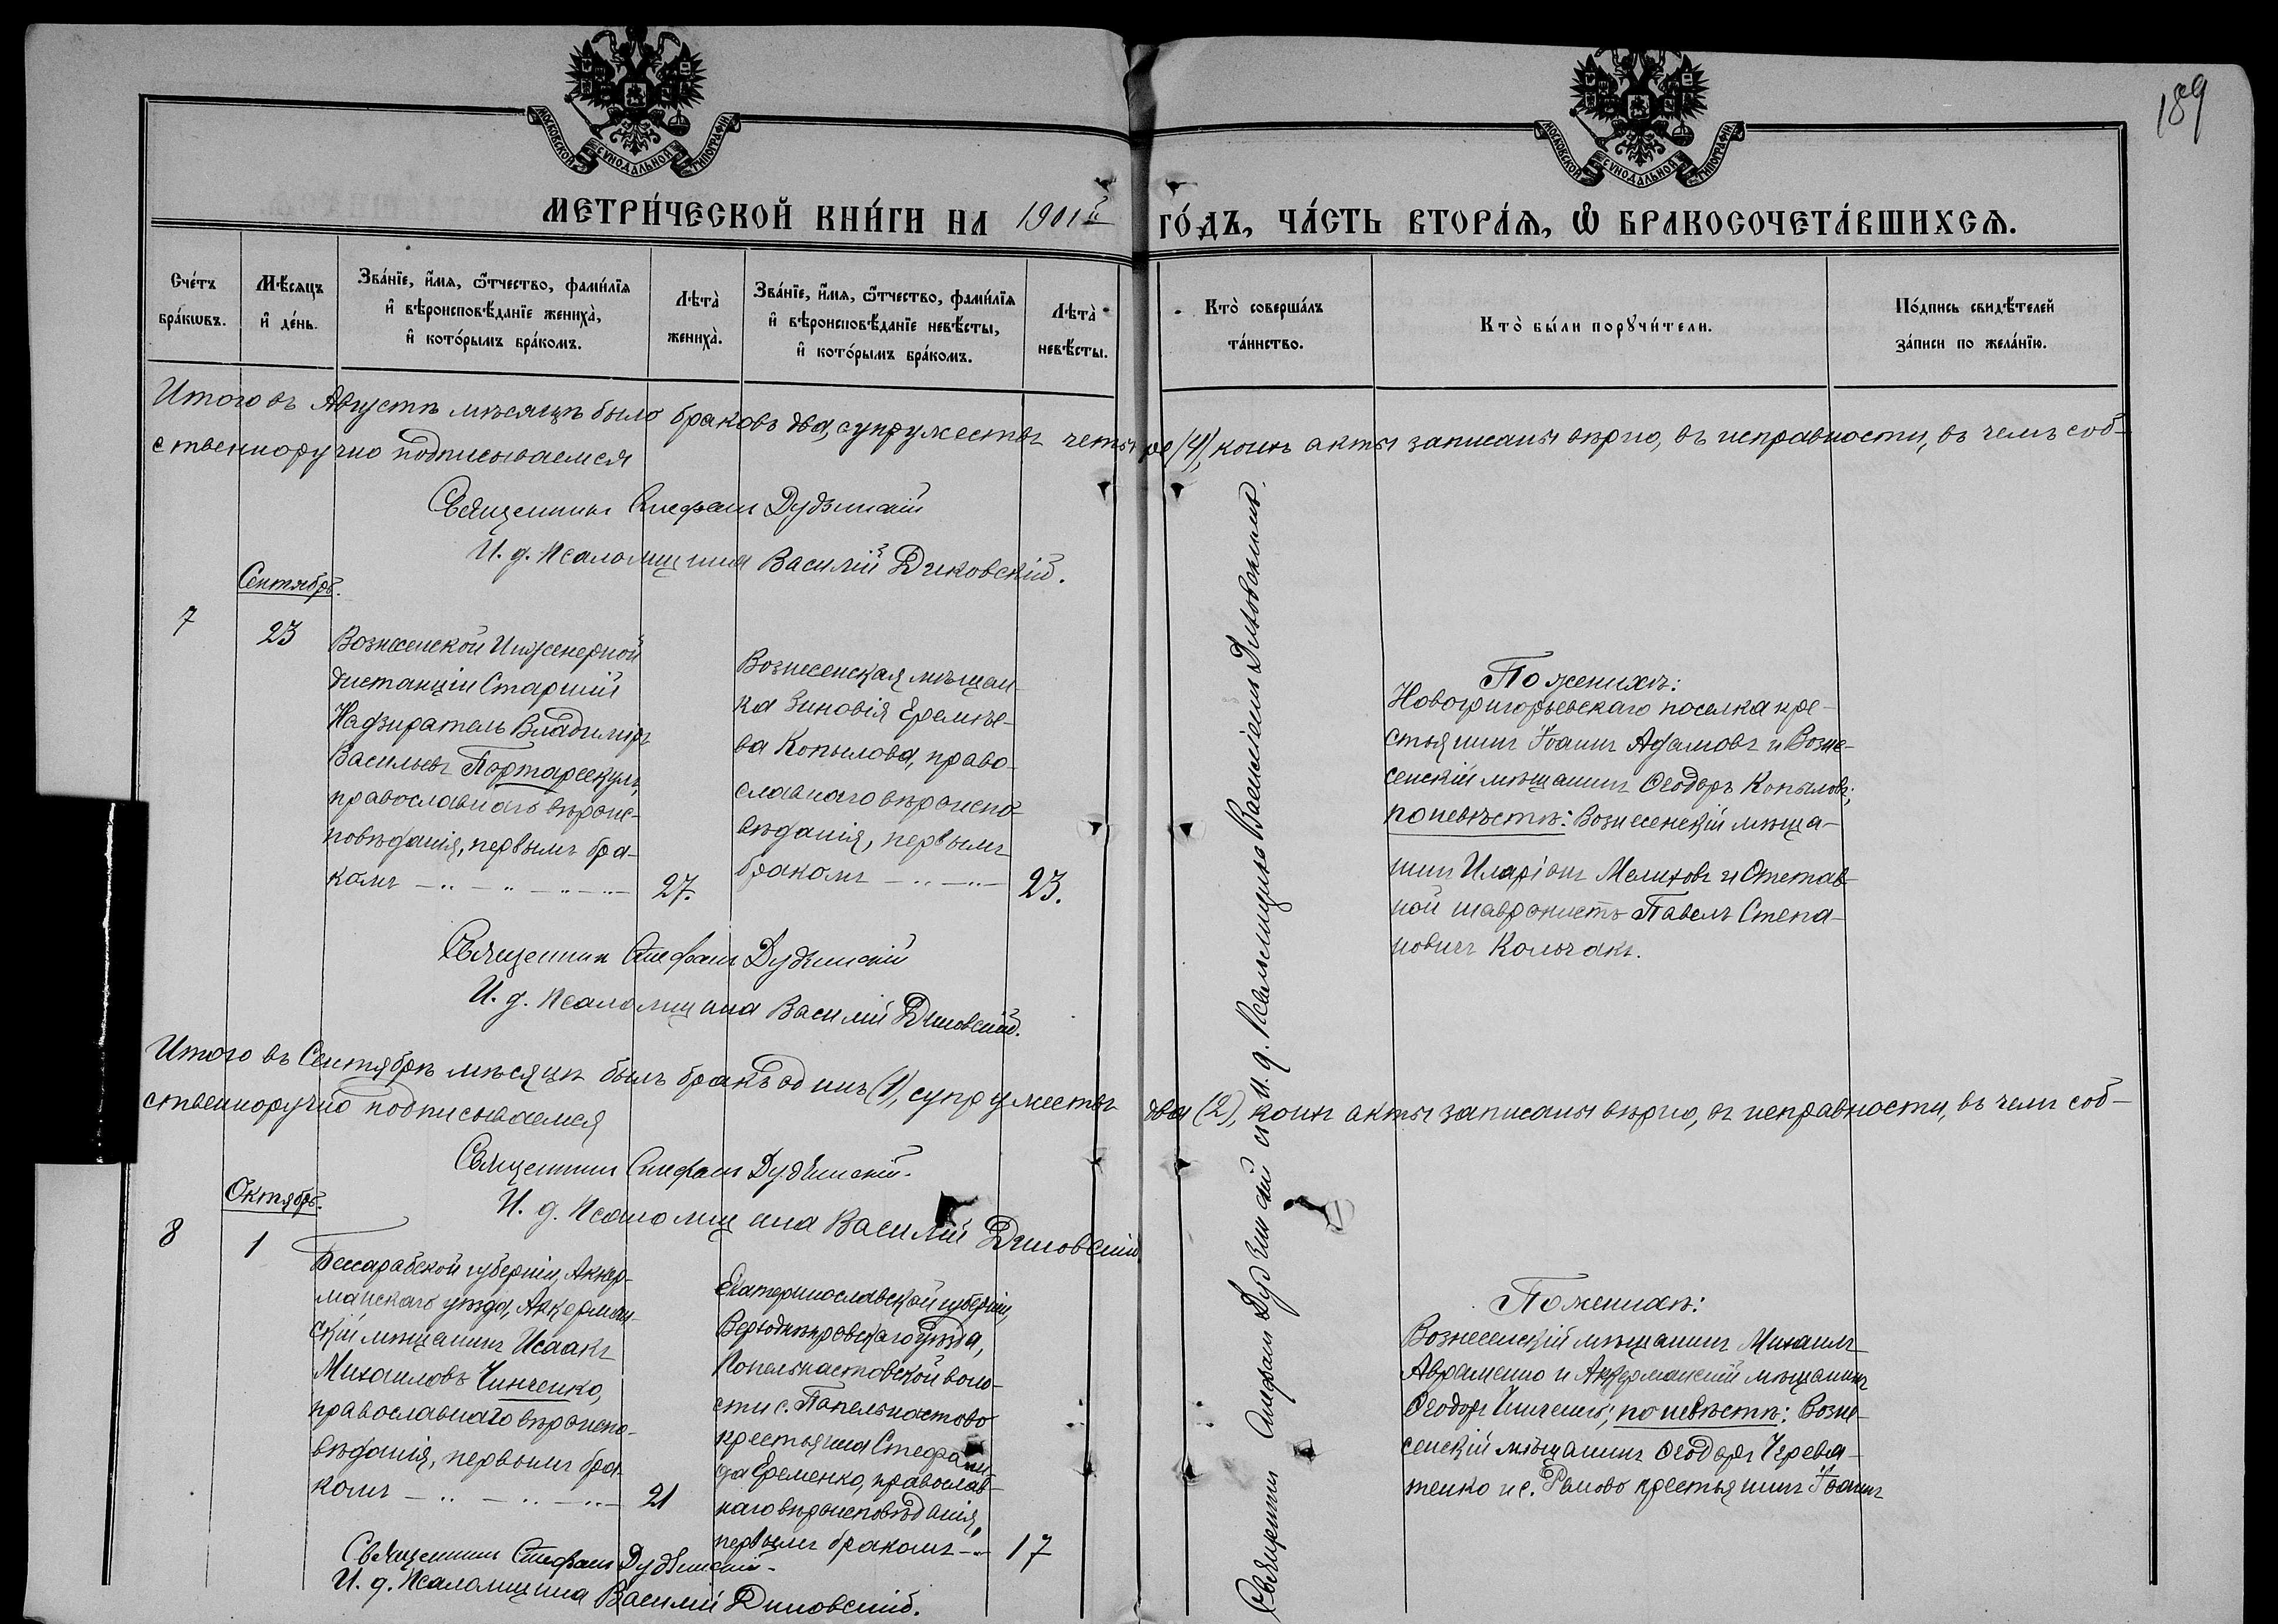 189
МОСКОВСКОЙ СѴНОДАЛЬНОЙ ТИПОГРАФІИ
МОСКОВСКОЙ СѴНОДАЛЬНОЙ ТИПОГРАФІИ
МЕТРИ́ЧЕСКОЙ КНИ́ГИ НА 1901й ГО́ДЪ, ЧА́СТЬ ВТОРА́Ѧ, Ѡ҆ БРАКОСОЧЕТА́ВШИХСѦ.
Сче́тъ
бра́кѡвъ.
Мѣ́сѧцъ
и҆ де́нь.
Зва́нїе, и҆́мѧ, ѻ҆́тчество, фами́лїѧ
и҆ вѣроисповѣ́данїе жениха̀,
и҆ кото́рымъ бра́комъ.
Лѣта̀
жениха̀.
Зва́нїе, и҆́мѧ, ѻ҆́тчество, фами́лїѧ
и҆ вѣроисповѣ́данїе невѣ́сты,
и҆ кото́рымъ бра́комъ.
Лѣта̀
невѣ́сты.
Кто̀ соверша́лъ
та́инство.
Кто̀ бы́ли порꙋчи́тели.
По́дпись свидѣ́телей
за́писи по жела́нїю.
Итого въ Августѣ мѣсяцѣ было браковъ два, супружествъ четыре (4), коихъ акты записаны вѣрно, въ исправности, въ чемъ соб-
ственноручно подписываемся
Священникъ Стефанъ Дудзинскій
И. д. Псаломщика Василій Диковскій.
Сентябрь.
7
23
Вознесенской Инженерной
дистанціи Старшій
Надзиратель Владиміръ
Васильевъ Портарескулъ,
православнаго вѣроис-
повѣданія, первымъ бра-
комъ
27.
Вознесенская мѣщан-
ка Зиновія Еремѣе-
ва Копылова, право-
славнаго вѣроиспо-
вѣданія, первымъ
бракомъ
23.
По женихѣ:
Новогригорьевскаго поселка кре-
стьянинъ Іоаннъ Адамовъ и Возне-
сенскій мѣщанинъ Ѳеодоръ Копыловъ;
по невѣстѣ: Вознесенскій мѣща-
нинъ Иларіонъ Мелиховъ и Отстав-
ной Павелъ Степа-
новичъ Колчакъ.
Священникъ Стефанъ Дудзинскій
И. д. Псаломщика Василій Диковскій.
Итого въ Сентябрѣ мѣсяцѣ былъ бракъ одинъ (1), супружествъ два (2), коихъ акты записаны вѣрно, въ исправности, въ чемъ соб-
ственноручно подписываемся
Священникъ Стефанъ Дудзинскій.
И. д. Псаломщика Василій Диковскій
Октябрь.
8
1
Бессарабской губерніи, Аккер-
манскаго уѣзда, Аккерман-
скій мѣщанинъ Исаакъ
Михаиловъ Чинченко,
православнаго вѣроиспо-
вѣданія, первымъ бра-
комъ
21
Екатеринославской губерніи,
Верхднѣпровскаго уѣзда,
Попельнастовской воло-
сти с. Попельнастово
крестьянка Стефани-
да Еременко, православ-
наго вѣроисповѣданія,
первымъ бракомъ
17
По женихѣ:
Вознесенскій мѣщанинъ Михаилъ
Авраменко и Аккерманскій мѣщанинъ
Ѳеодоръ Чинченко; по невѣстѣ: Возне-
сенскій мѣщанинъ Ѳеодоръ Черева-
тенко и с. крестьянинъ Іоаннъ
Священникъ Стефанъ Дудзинскій
И. д. Псаломщика Василій Диковскій.
Священникъ Стефанъ Дудзинскій съ и. д. Псаломщика Василіемъ Диковскимъ.